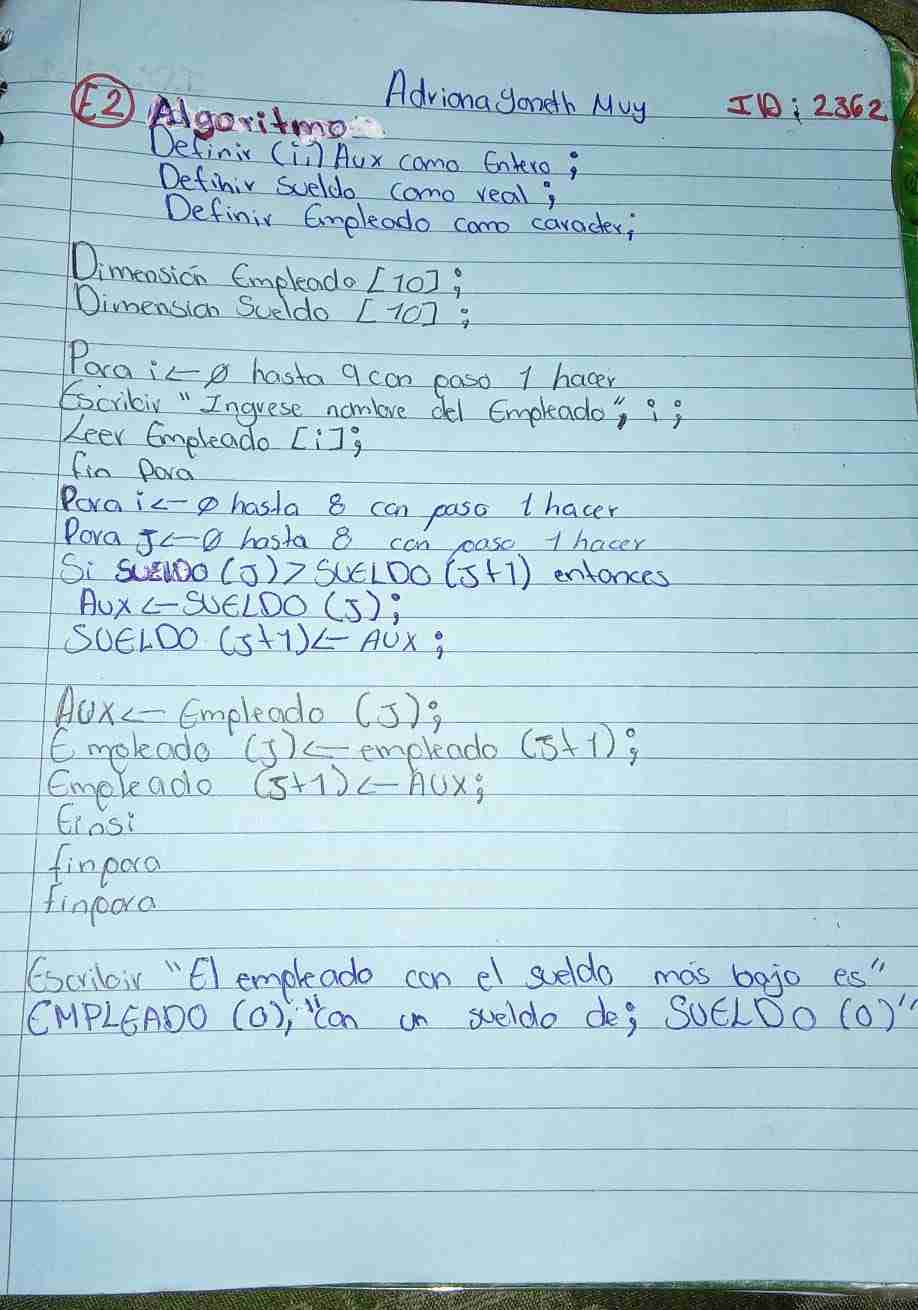 E2 Adriana Yoneth Muy ID: 2362
Algoritmo
Definir (i,) Aux como Entero;
Definir sueldo como real;
Definir Empleado como caracter;
Dimensión Empleado [10];
Dimension Sueldo [10];
Para i ← 0 hasta 9 con paso 1 hacer
Escribir "Ingrese nombre del Empleado", i;
Leer Empleado [i];
fin para
Para i ← 0 hasta 8 con paso 1 hacer
Para J ← 0 hasta 8 con paso 1 hacer
Si SUELDO (J) > SUELDO (J+1) entonces
AUX ← SUELDO (J);
SUELDO (J+1) ← AUX;
AUX ← Empleado (J);
Empleado (J) ← empleado (J+1);
Empleado (J+1) ← AUX;
Finsi
finpara
finpara
Escribir "El empleado con el sueldo más bajo es"
EMPLEADO (0), "con un sueldo de; SUELDO (0)"